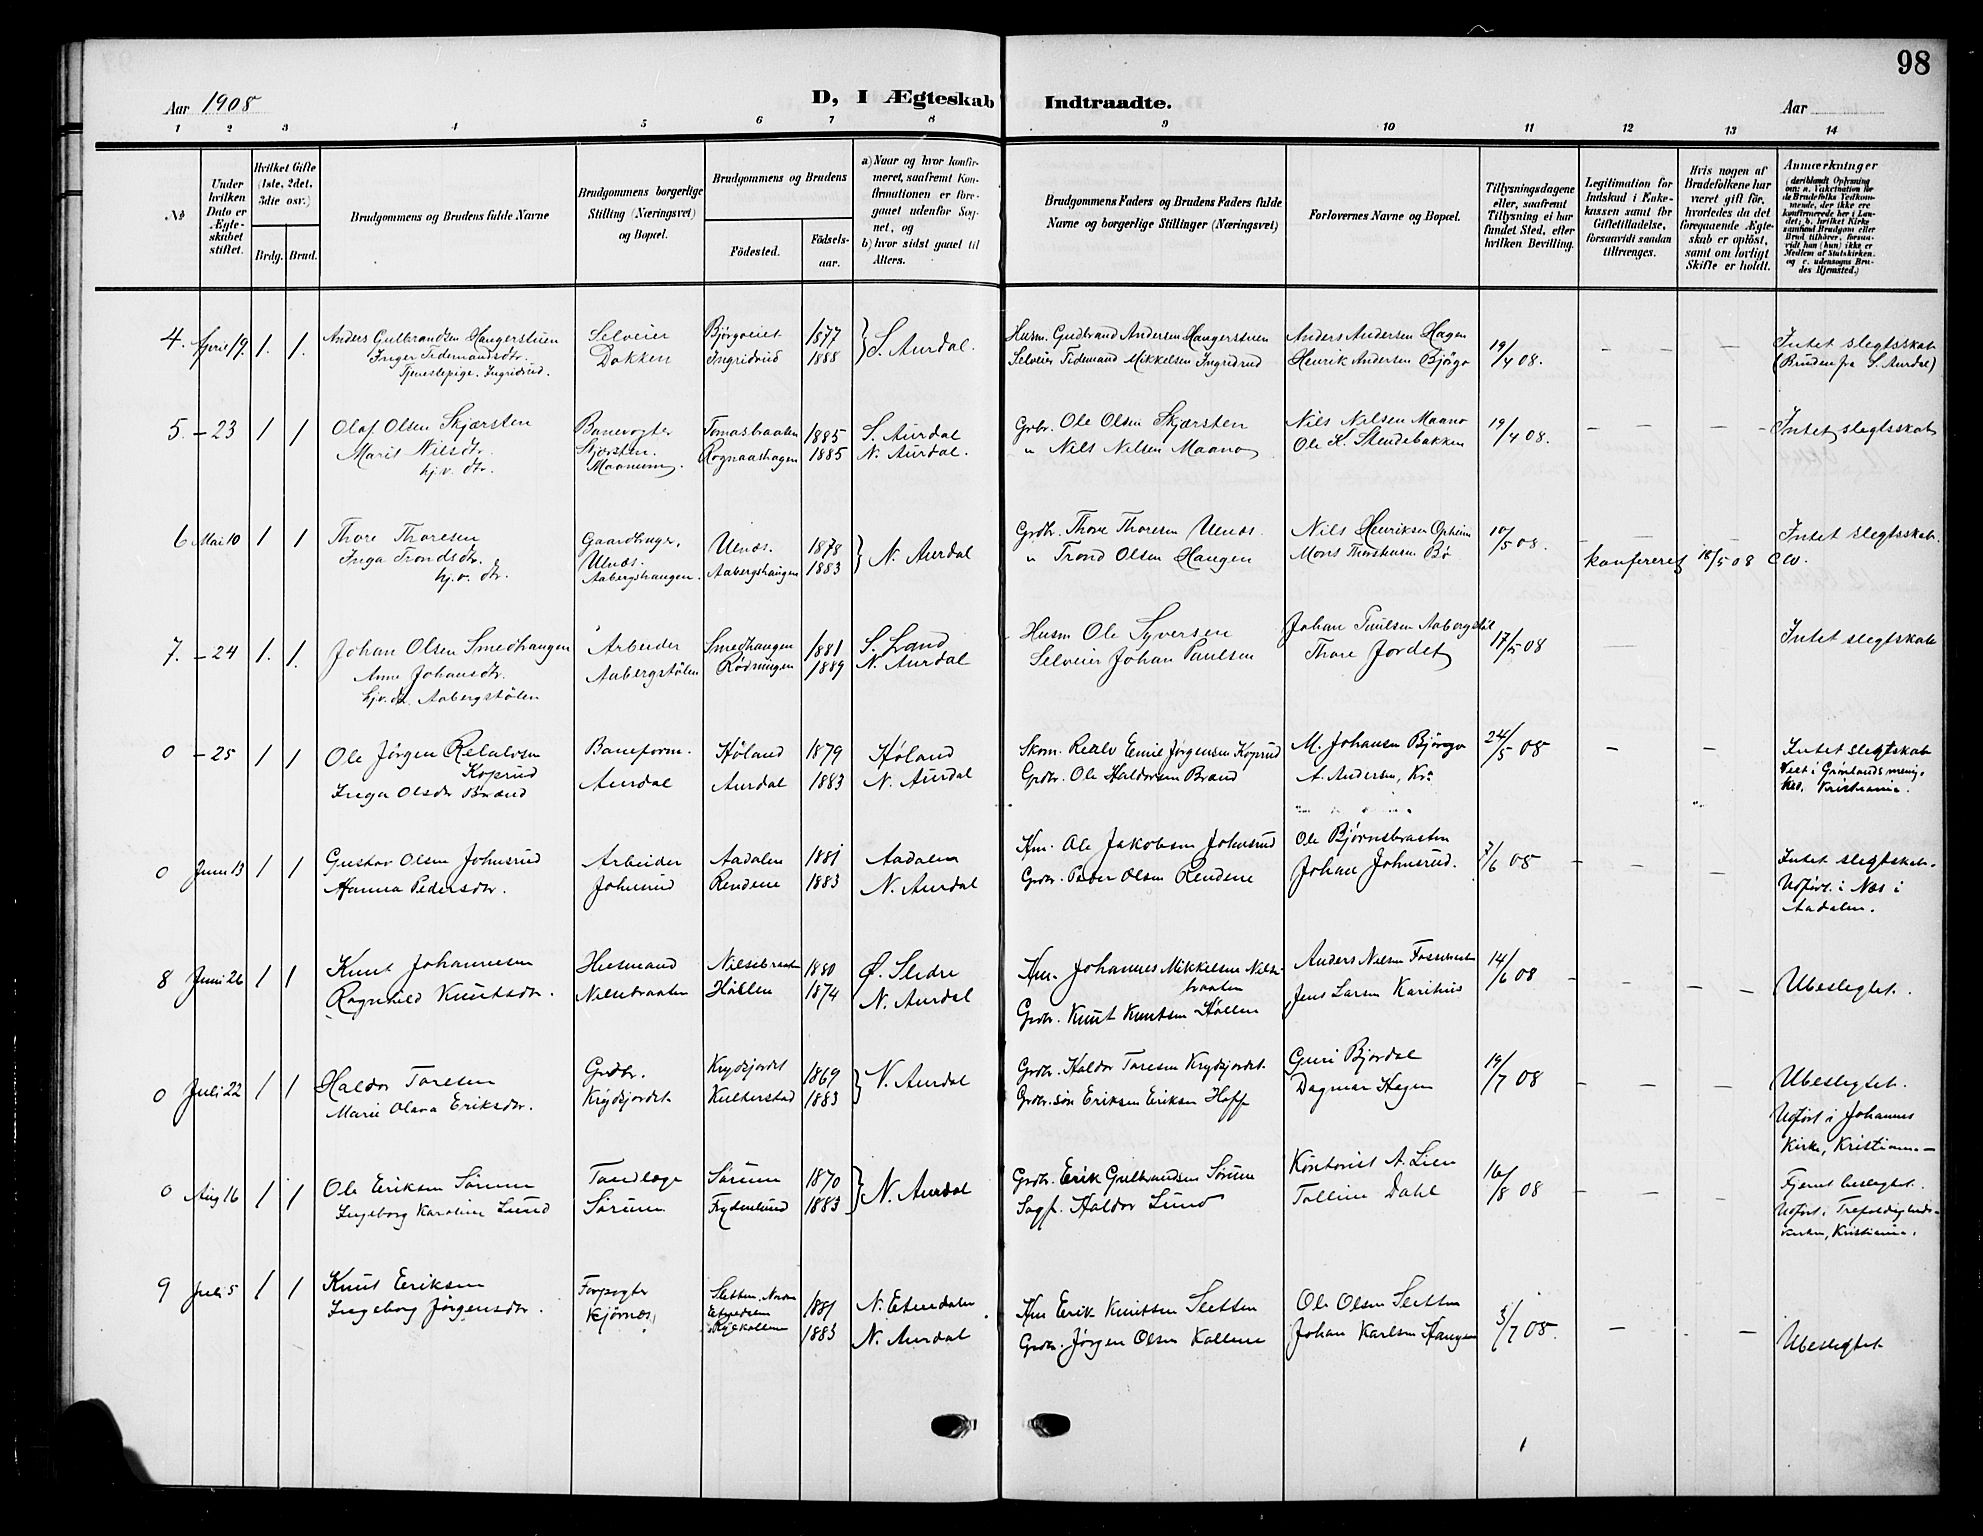 98
Aar 1908
D, I Ægteskab Indtraadte.
Aar
1 2 3 4 5 6 7 8 9 10 11 12 13 14
No
Under hvilken Dato er Ægteskabet stiftet.
Hvilket Gifte (1ste, 2det, 3dte osv.)
Brdg. Brud.
Brudgommens og Brudens fulde Navne
Brudgommens borgerlige Stilling (Næringsvei) og Bopæl.
Brudgommens og Brudens
Fødested.
Fødselsaar.
a) Naar og hvor konfirmeret, saafremt Konfirmationen er foregaaet udenfor Sognet, og
b) hvor sidst gaaet til Alters.
Brudgommens Faders og Brudens Faders fulde Navne og borgerlige Stillinger (Næringsvei)
Forlovernes Navne og Bopæl.
Tillysningsdagene eller, saafremt Tillysning ei har fundet Sted, efter hvilken Bevilling.
Legitimation for Indskud i Enkekassen samt for Giftetilladelse, forsaavidt saadan tiltrænges.
Hvis nogen af Brudefolkene har været gift før, hvorledes da det foregaaende Ægteskab er opløst, samt om lovligt Skifte er holdt.
Anmærkninger
(deriblandt Oplysning om: a. Vakcination for de Brudefolks Vedkommende, der ikke ere konfirmerede her i Landet; b. hvilket Kirkesamfund Brudgom eller Brud tilhører, forsaavidt han (hun) ikke er Medlem af Statskirken. og c. udensogns Brudes Hjemsted.)
4. April 19. 1. 1. Anders Gulbrandsen Haugerstuen Selveier Bjørgoeiet 1877 } S. Aurdal. Husm. Gudbrand Andersen Haugerstuen Anders Andersen Hagen 19/4 08. – – – Intet slegtsskab
Inger Tidemandsdtr. Dokken Ingridrud 1888 Selveier Tidemand Mikkelsen Ingridrud Henrik Andersen Bjørgo (Bruden fra S. Aurdal)
Tjenestepige. Ingridrud.
5. – 23 1 1 Olaf Olsen Skjærsten Banevogter Tomasbraaten 1885 S. Aurdal Grbr. Ole Olsen Skjærsten Nils Nilsen Maano 19/4 08. – – – – Intet slegtsskab
Marit Nilsdtr. Skjærsten. Rognaashagen 1885 N. Aurdal. " Nils Nilsen Maano Ole K. Stendebakken
hj.v. dtr. Maanum.
6 Mai 10 1 1 Thore Thoresen Gaardbruger, Ulnæs. 1878 } N. Aurdal Grdbr. Thore Thoresen Ulnæs. Nils Henriksen Opheim 10/5 08. Intet slegtsskab.
Inga Trondsdtr. Ulnæs. Aabergshaugen 1883 " Trond Olsen Haugen Mons Thorstensen Bø konfereret 18/5 08 CW.
hj.v. dtr. Aabergshaugen.
7. – 24 1. 1. Johan Olsen Smedhaugen Arbeider Smedhaugen 1881 S. Land Husm Ole Syversen Johan Paulsen Aabergstøl 17/5 08 – Intet slegtskab
Anne Johansdtr. Aabergstølen Rødningen 1889 N. Aurdal Selveier Johan Paulsen Thore Jordet
hj.v. dtr. Aabergstølen
0 – 25 1 1 Ole Jørgen Relalvsen Baneform. Høland 1879 Høland Skom. Relalv Emil Jørgensen Koprud M. Johansen Bjørgo 24/5 08 – – Intet slegtskab
Koprud
Inga Olsdtr Brænd Aurdal Aurdal 1883 N. Aurdal Grdbr. Ole Haldorsen Brænd A. Andersen, Kra Viet i Grønlands menighed, Kristiania.
0 Juni 13 1 1 Gustav Olsen Johnsrud Arbeider Aadalen 1881 Aadalen Hm. Ole Jakobsen Johnsrud Ole Bjørnsbraaten 7/6 08 – – – Intet slegtskab.
Hanna Pedersdtr. Johnsrud Rendene 1883 N. Aurdal Grdbr. Peder Olsen Rendene Johan Johnsrud. Udført i Næs i Aadalen.
8 Juni 26 1 1 Knut Johannesen Husmand Nilsebraaten 1880 Ø. Slidre Hm. Johannes Mikkelsen Nilsebraaten Anders Nilsen 14/6 08 – – – – Ubeslegtet.
Ragnhild Knutsdtr. Nilsebraaten Høllen 1874 N. Aurdal Grdbr. Knut Knutsen Høllen Jens Larsen Karihus
0 Juli 22 1 1 Haldor Toresen Grdbr. Krydsjordet 1869 } N. Aurdal Grdbr. Haldor Toresen Krydsjordet Guri Bjørdal 19/7 08 – – – Ubeslegtet.
Marie Olava Eriksdtr. Krydsjordet Kulterstad 1883 Grdbr.søn Eriksen Eriksen Hoff Dagmar Hagen Udført i Johannes Kirke, Kristiania –
0 Aug 16 1 1 Ole Eriksen Sørum Tandlæge Sørum 1870 } N. Aurdal Grdbr. Erik Gulbrandsen Sørum Kontorist A. Lien 16/8 08 – – – Fjernt beslegtet.
Ingeborg Karoline Lund Sørum Frydenlund 1883 Sagf. Haldor Lund Tolline Dahl Udført i Trefoldighedskirken, Kristiania.
9 Juli 5 1 1 Knut Eriksen Forpagter Sletten, Nordre Etnedalen 1881 N. Etnedalen Hm Erik Knutsen Sletten Ole Olsen Sletten 5/7 08. – – Ubeslegtet
Ingeborg Jørgensdtr. Kjørnæs 1883 N. Aurdal Grdbr. Jørgen Olsen Kollene Johan Karlsen Haugen